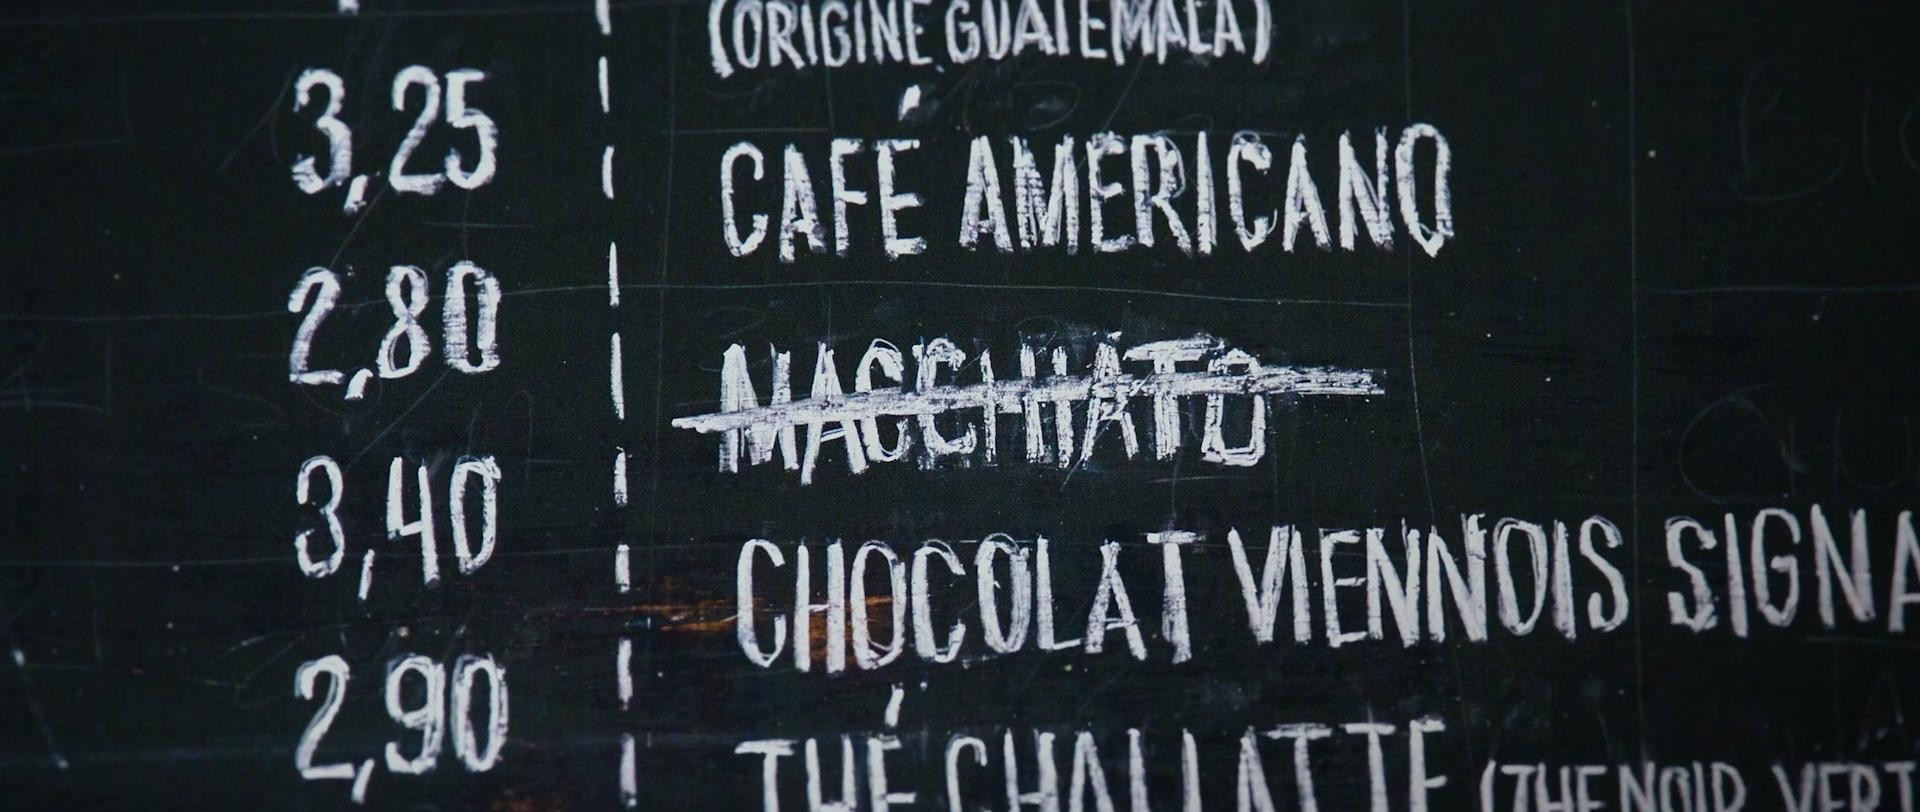 (ORIGINE GUATEMALA)
3,25 CAFÉ AMERICANO
2,80 MACCHIATO
3,40 CHOCOLAT VIENNOIS SIGNA
2,90 THÉ CHAI LATTE (THE NOIR, VERT